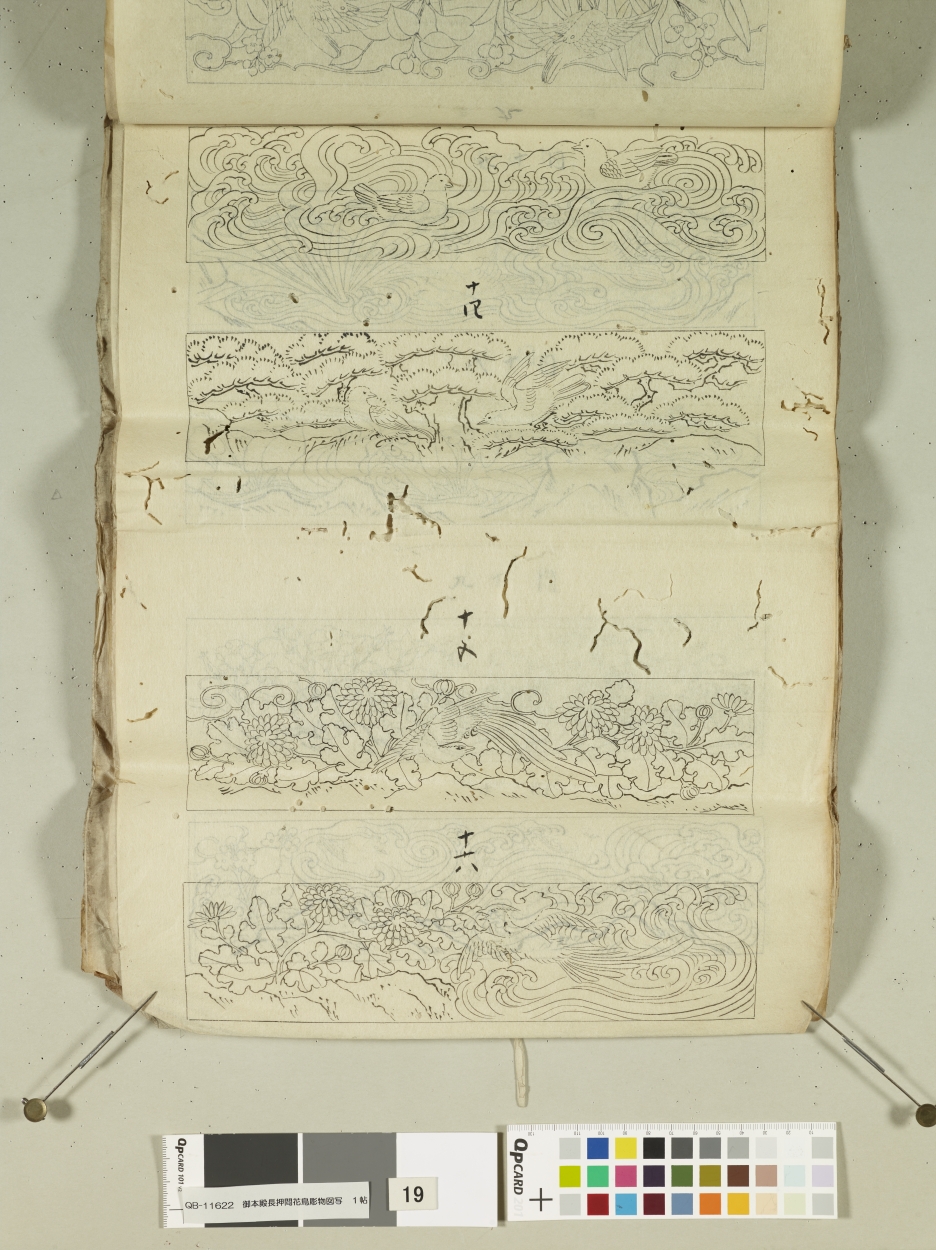 十四
十五
十六
QPCARD 101
QB-11622 御本殿長押間花鳥彫物図写 1帖
19
QPCARD